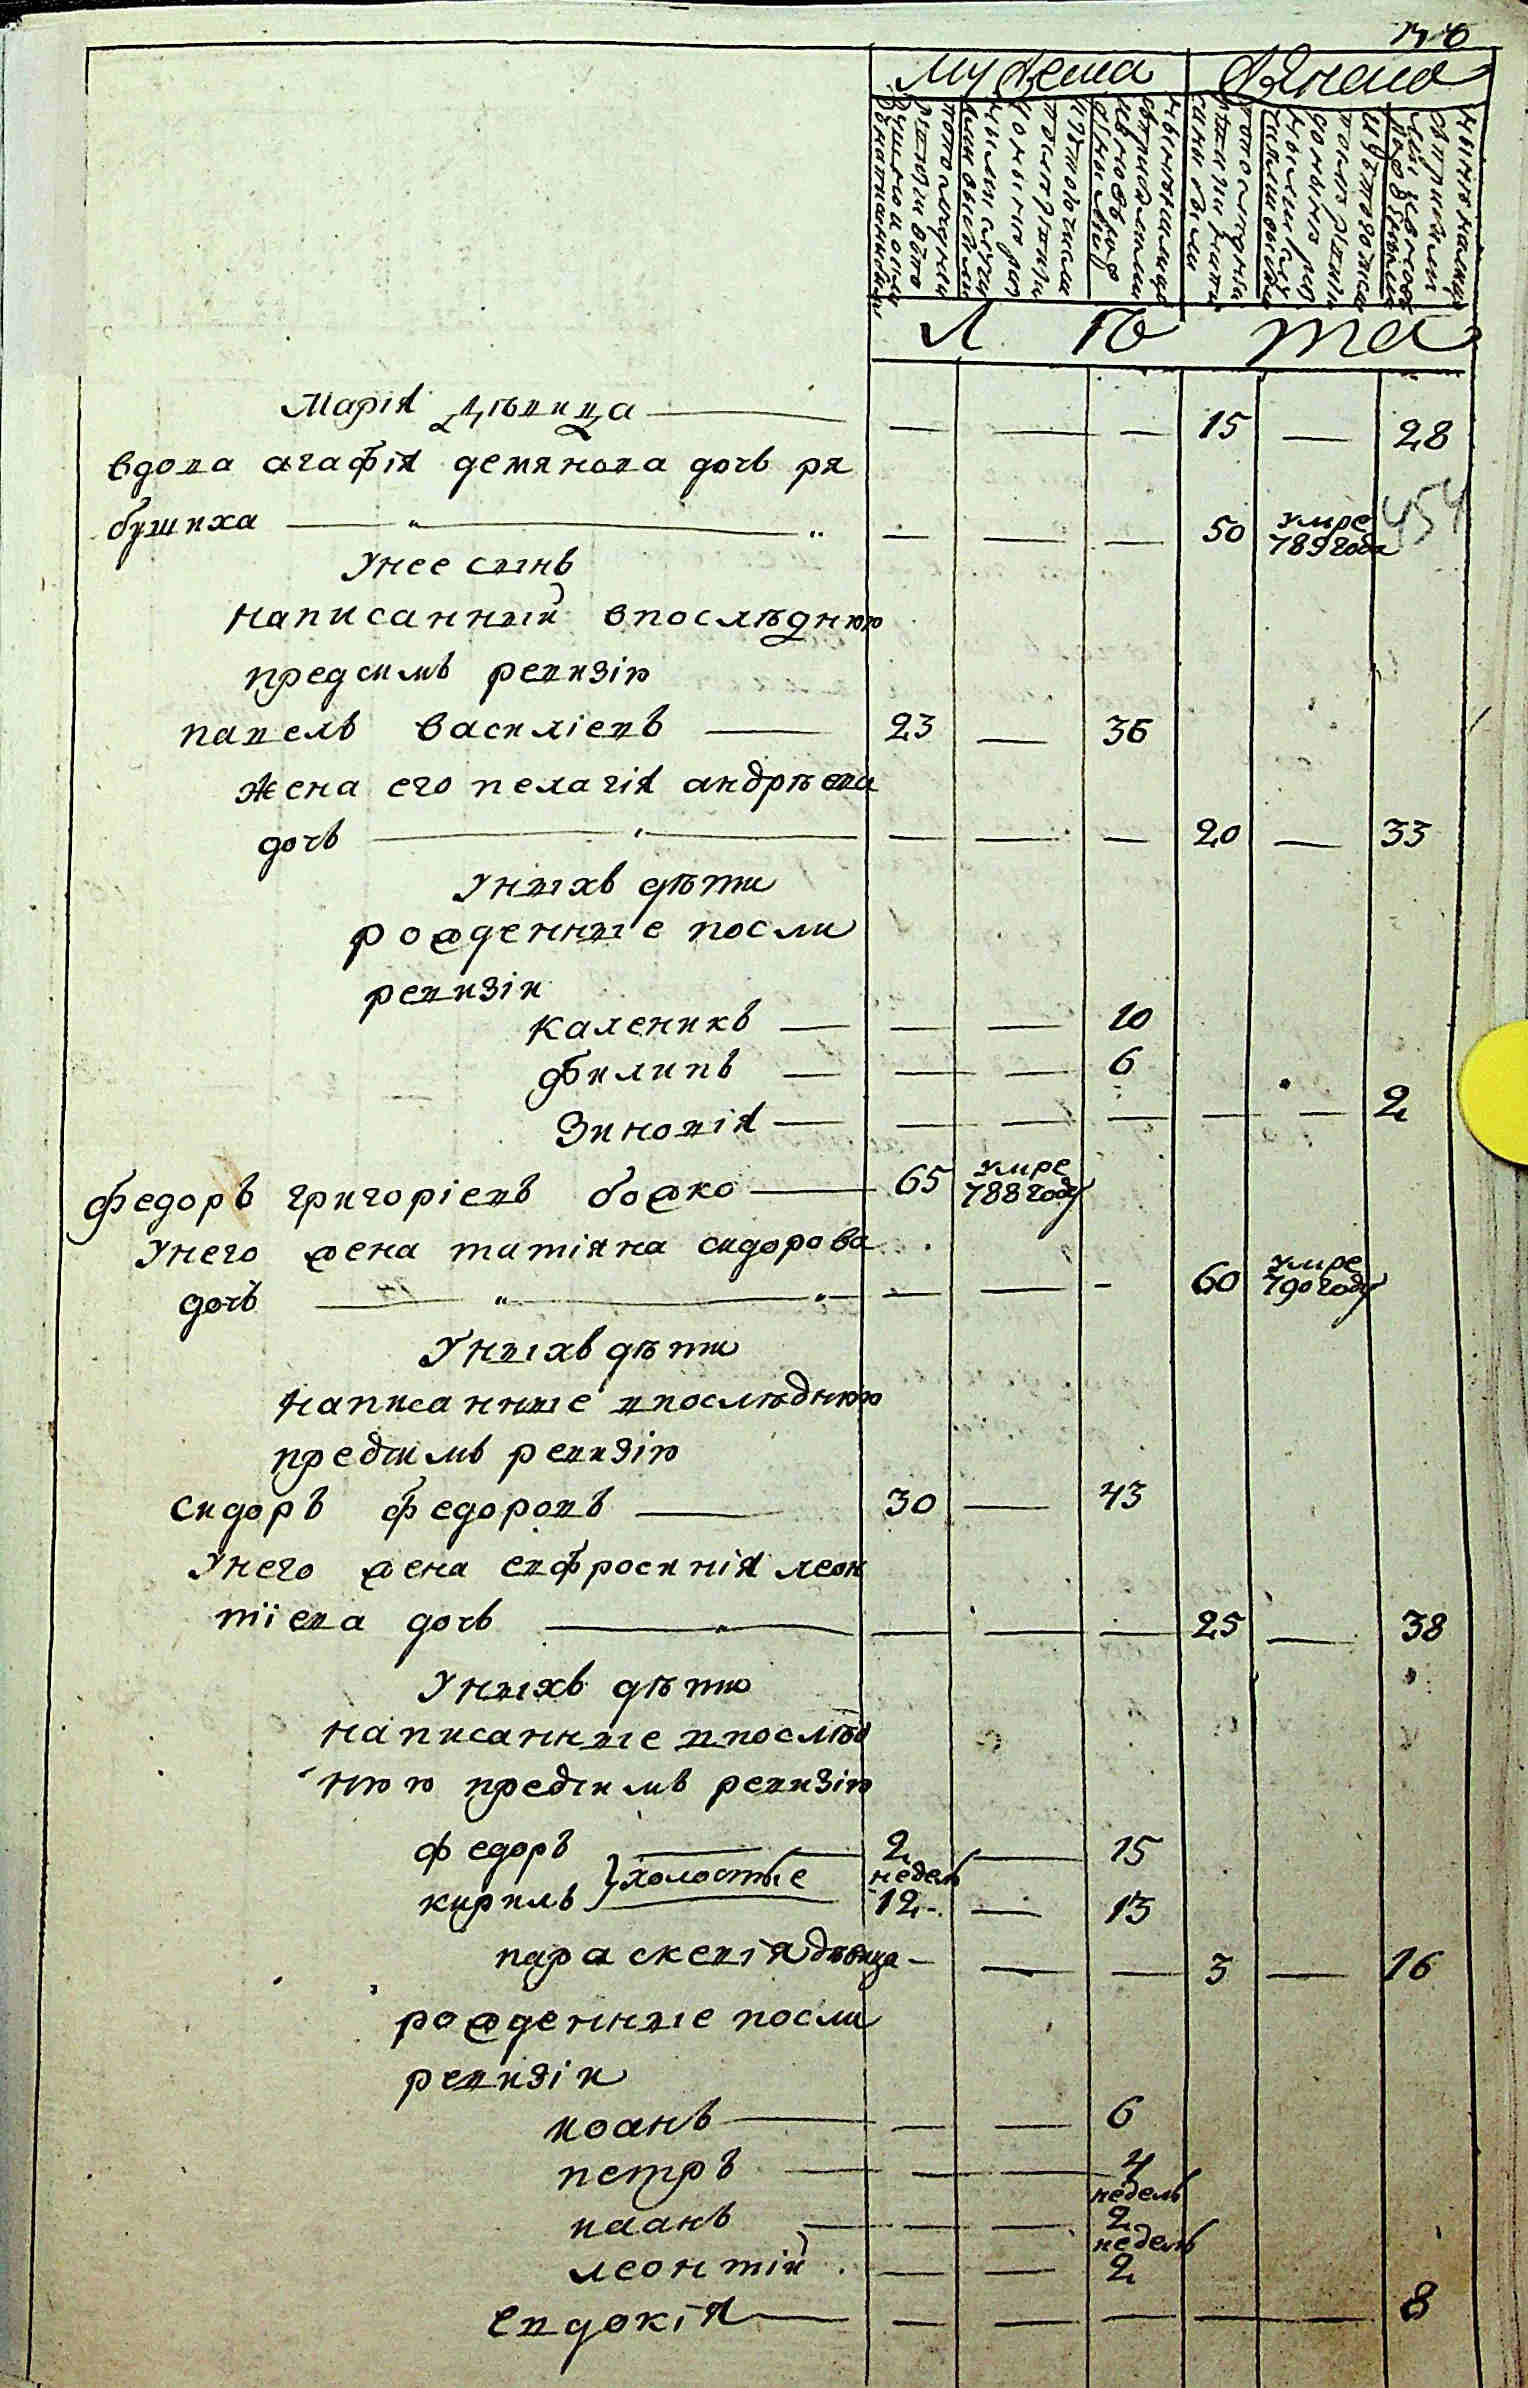 мужеска
женска
л ѣ та
Марія дѣвица — — — — 15 — 28
вдова агафія демянова дочь ря
бушиха — — — — 50 умре 789 года 454
унее сынъ
написанный впослѣднюю
предсимъ ревизію
павелъ василіевъ — 23 — 36
жена его пелагія андрѣева
дочь — — — — 20 — 33
уныхъ дѣти
рожденные посли
ревизіи
каленикъ — — — 10
филипъ — — — 6
Зиновія — — — — — — 2
федоръ григоріевъ божко — 65 умре 788 году
унего жена татіяна сидорова
дочь — — — — 60 умре 790 году
Уныхъ дѣти
написанные впослѣднюю
предсимъ ревизію
сидоръ федоровъ — 30 — 43
унего жена евфросинія леон
тіева дочь — — — — 25 — 38
Уныхъ дѣти
написанные впослѣд
нюю предсимъ ревизію
федоръ — 2 — 15
холостые
кирилъ недель 12 — 13
параскевія дѣвица — — — 3 — 16
рожденные посли
ревизіи
иоанъ — — — 6
петръ — — — 4
иванъ — — — недель 2
леонтій — — недель 2
евдокія — — — — — — 8